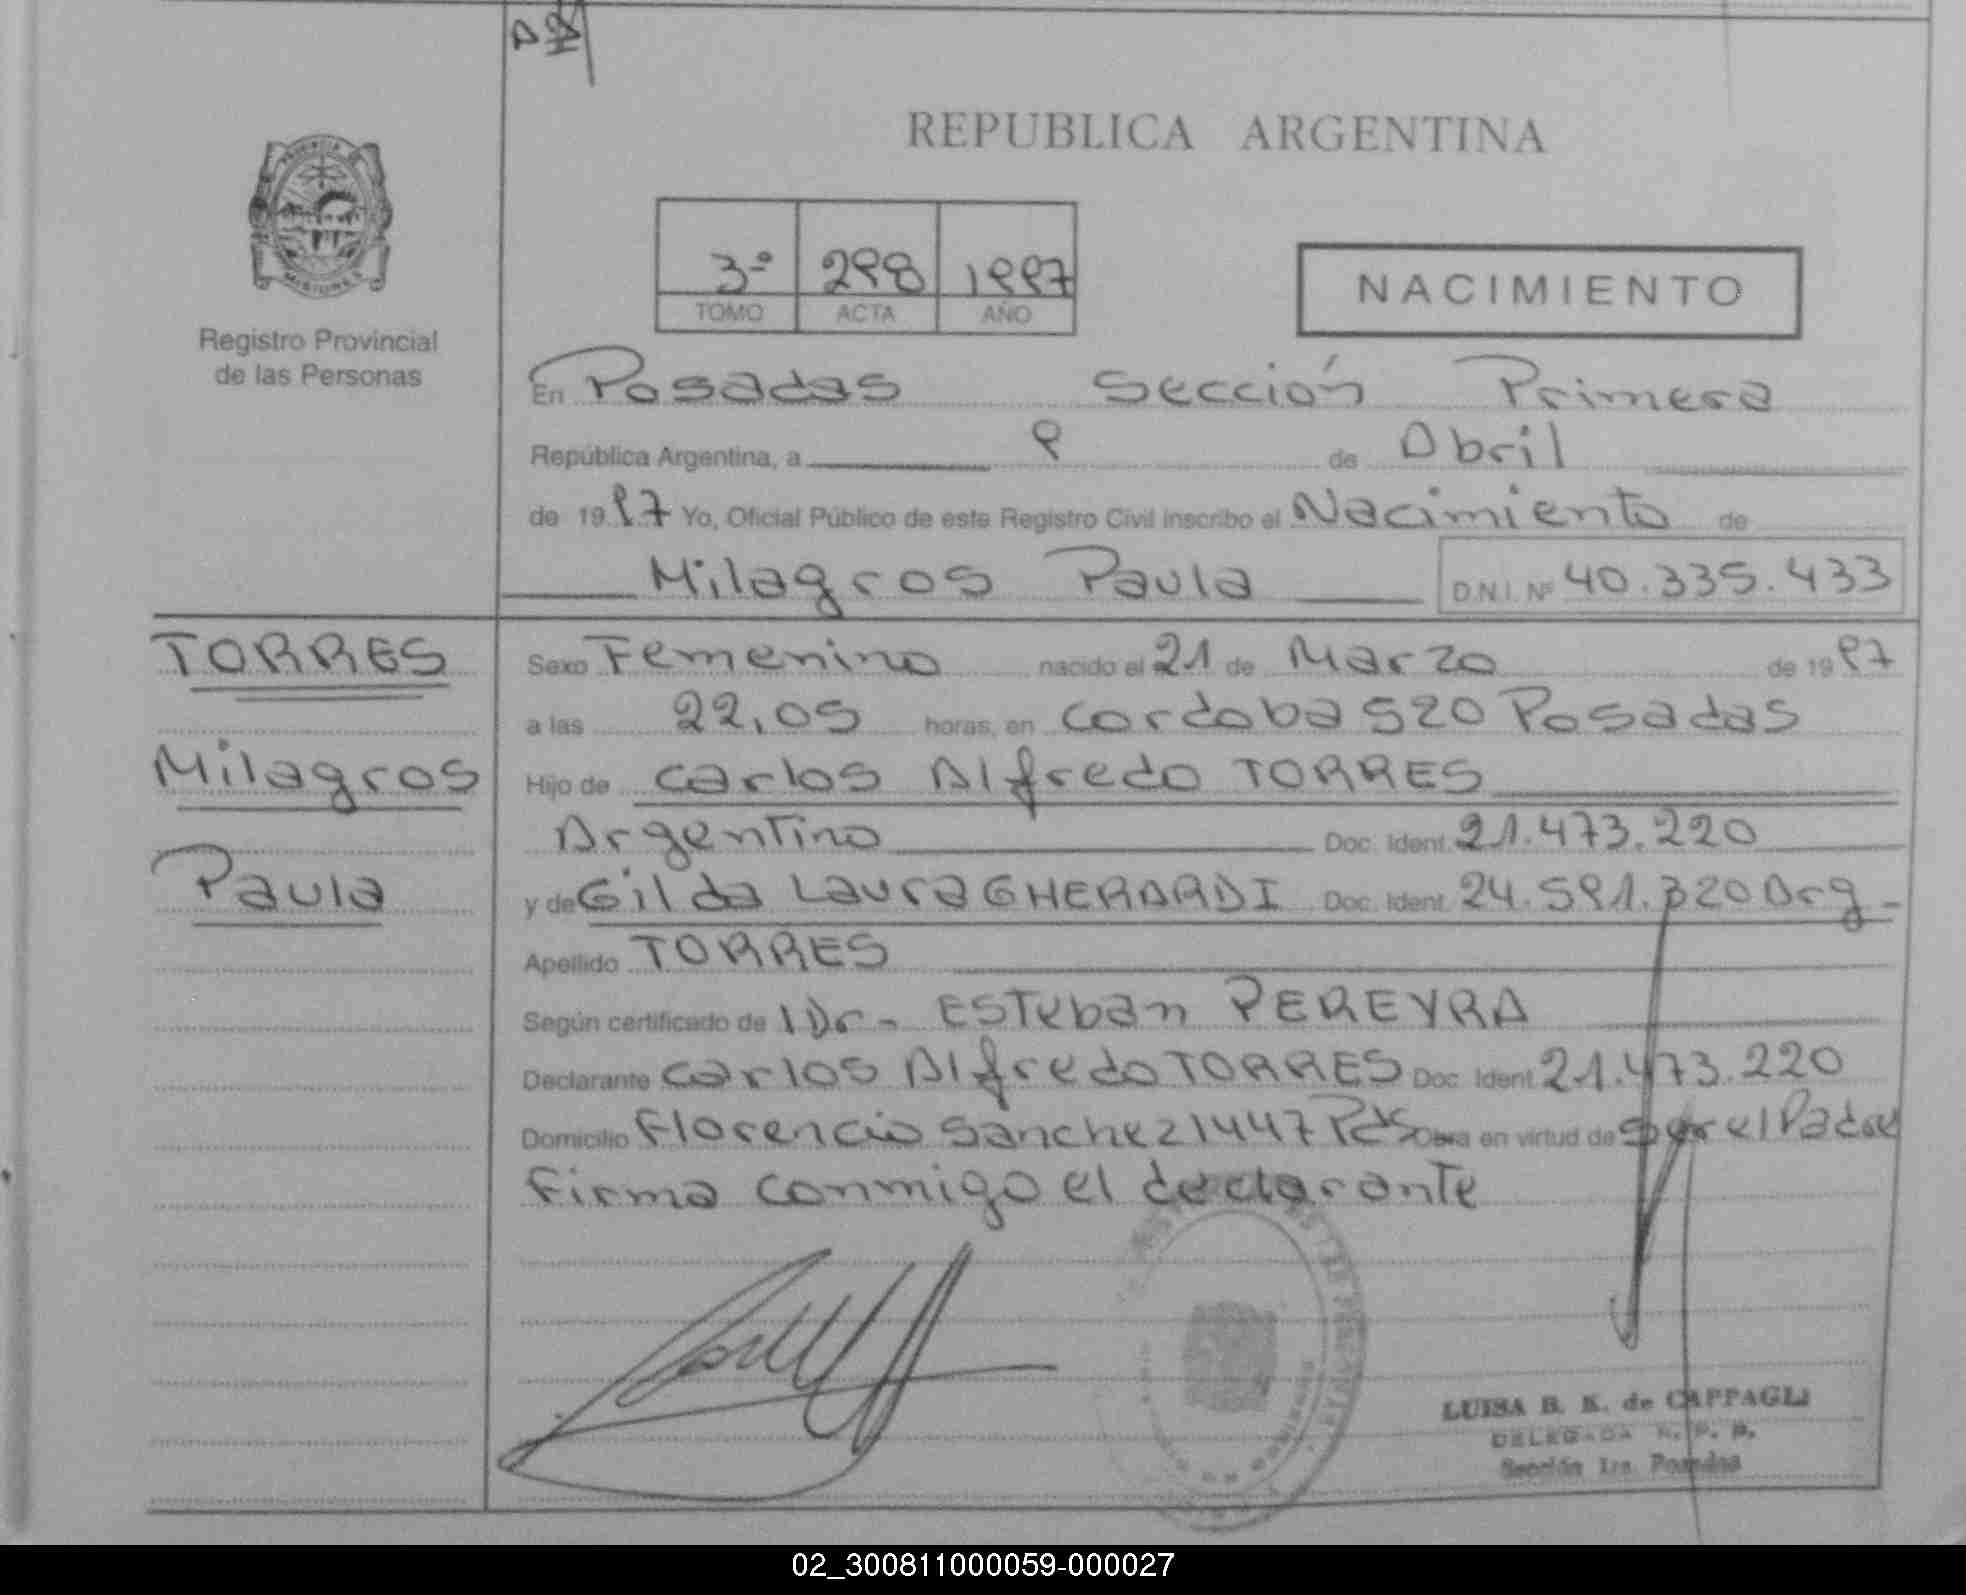 REPUBLICA ARGENTINA
3º 298 1997
TOMO ACTA AÑO
NACIMIENTO
PROVINCIA DE
MISIONES
Registro Provincial
de las Personas
En Posadas Sección Primera
República Argentina, a 9 de Abril
de 1997 Yo, Oficial Público de este Registro Civil inscribo el Nacimiento de
Milagros Paula D.N.I. Nº 40.335.433
TORRES
Milagros
Paula
Sexo Femenino nacido el 21 de Marzo de 1997
a las 22,05 horas, en cordoba 520 Posadas
Hijo de carlos Alfredo TORRES
Argentino Doc. Ident. 21.473.220
y de Gilda Laura GHERARDI Doc. Ident. 24.591.320 Arg-
Apellido TORRES
Según certificado de Dr- ESTeban PEREYRA
Declarante carlos Alfredo TORRES Doc. Ident. 21.473.220
Domicilio Florencio Sanchez 1447 Pds Obra en virtud de ser el Padre
Firma conmigo el declarante
LUISA B. K. de CAPPAGLI
DELEGADA R. P. P.
Sección 1ra. Posadas
02_300811000059-000027